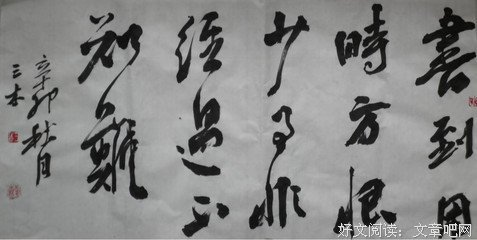 書到用
時方恨
少事非
經過不
知難
辛卯秋月
三木
好文阅读：文章吧网